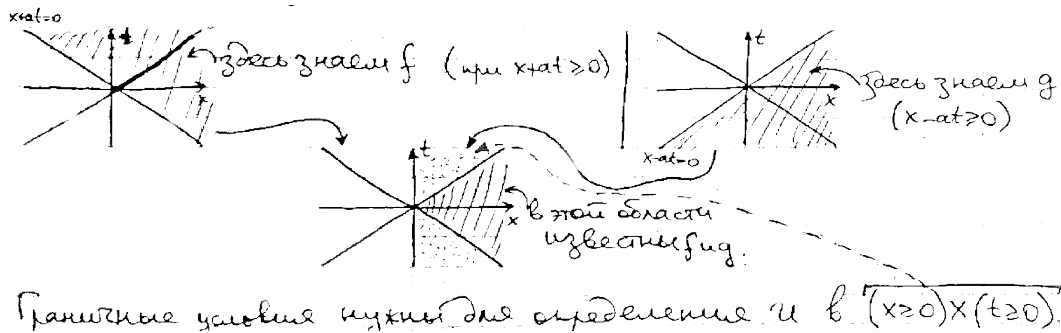 x+at=0
t
x
здесь знаем f (при x+at≥0)
t
x
здесь знаем g
(x-at≥0)
x-at=0
t
x
в этой области
известны f и g.
Граничные условия нужны для определения u в (x≥0)×(t≥0).